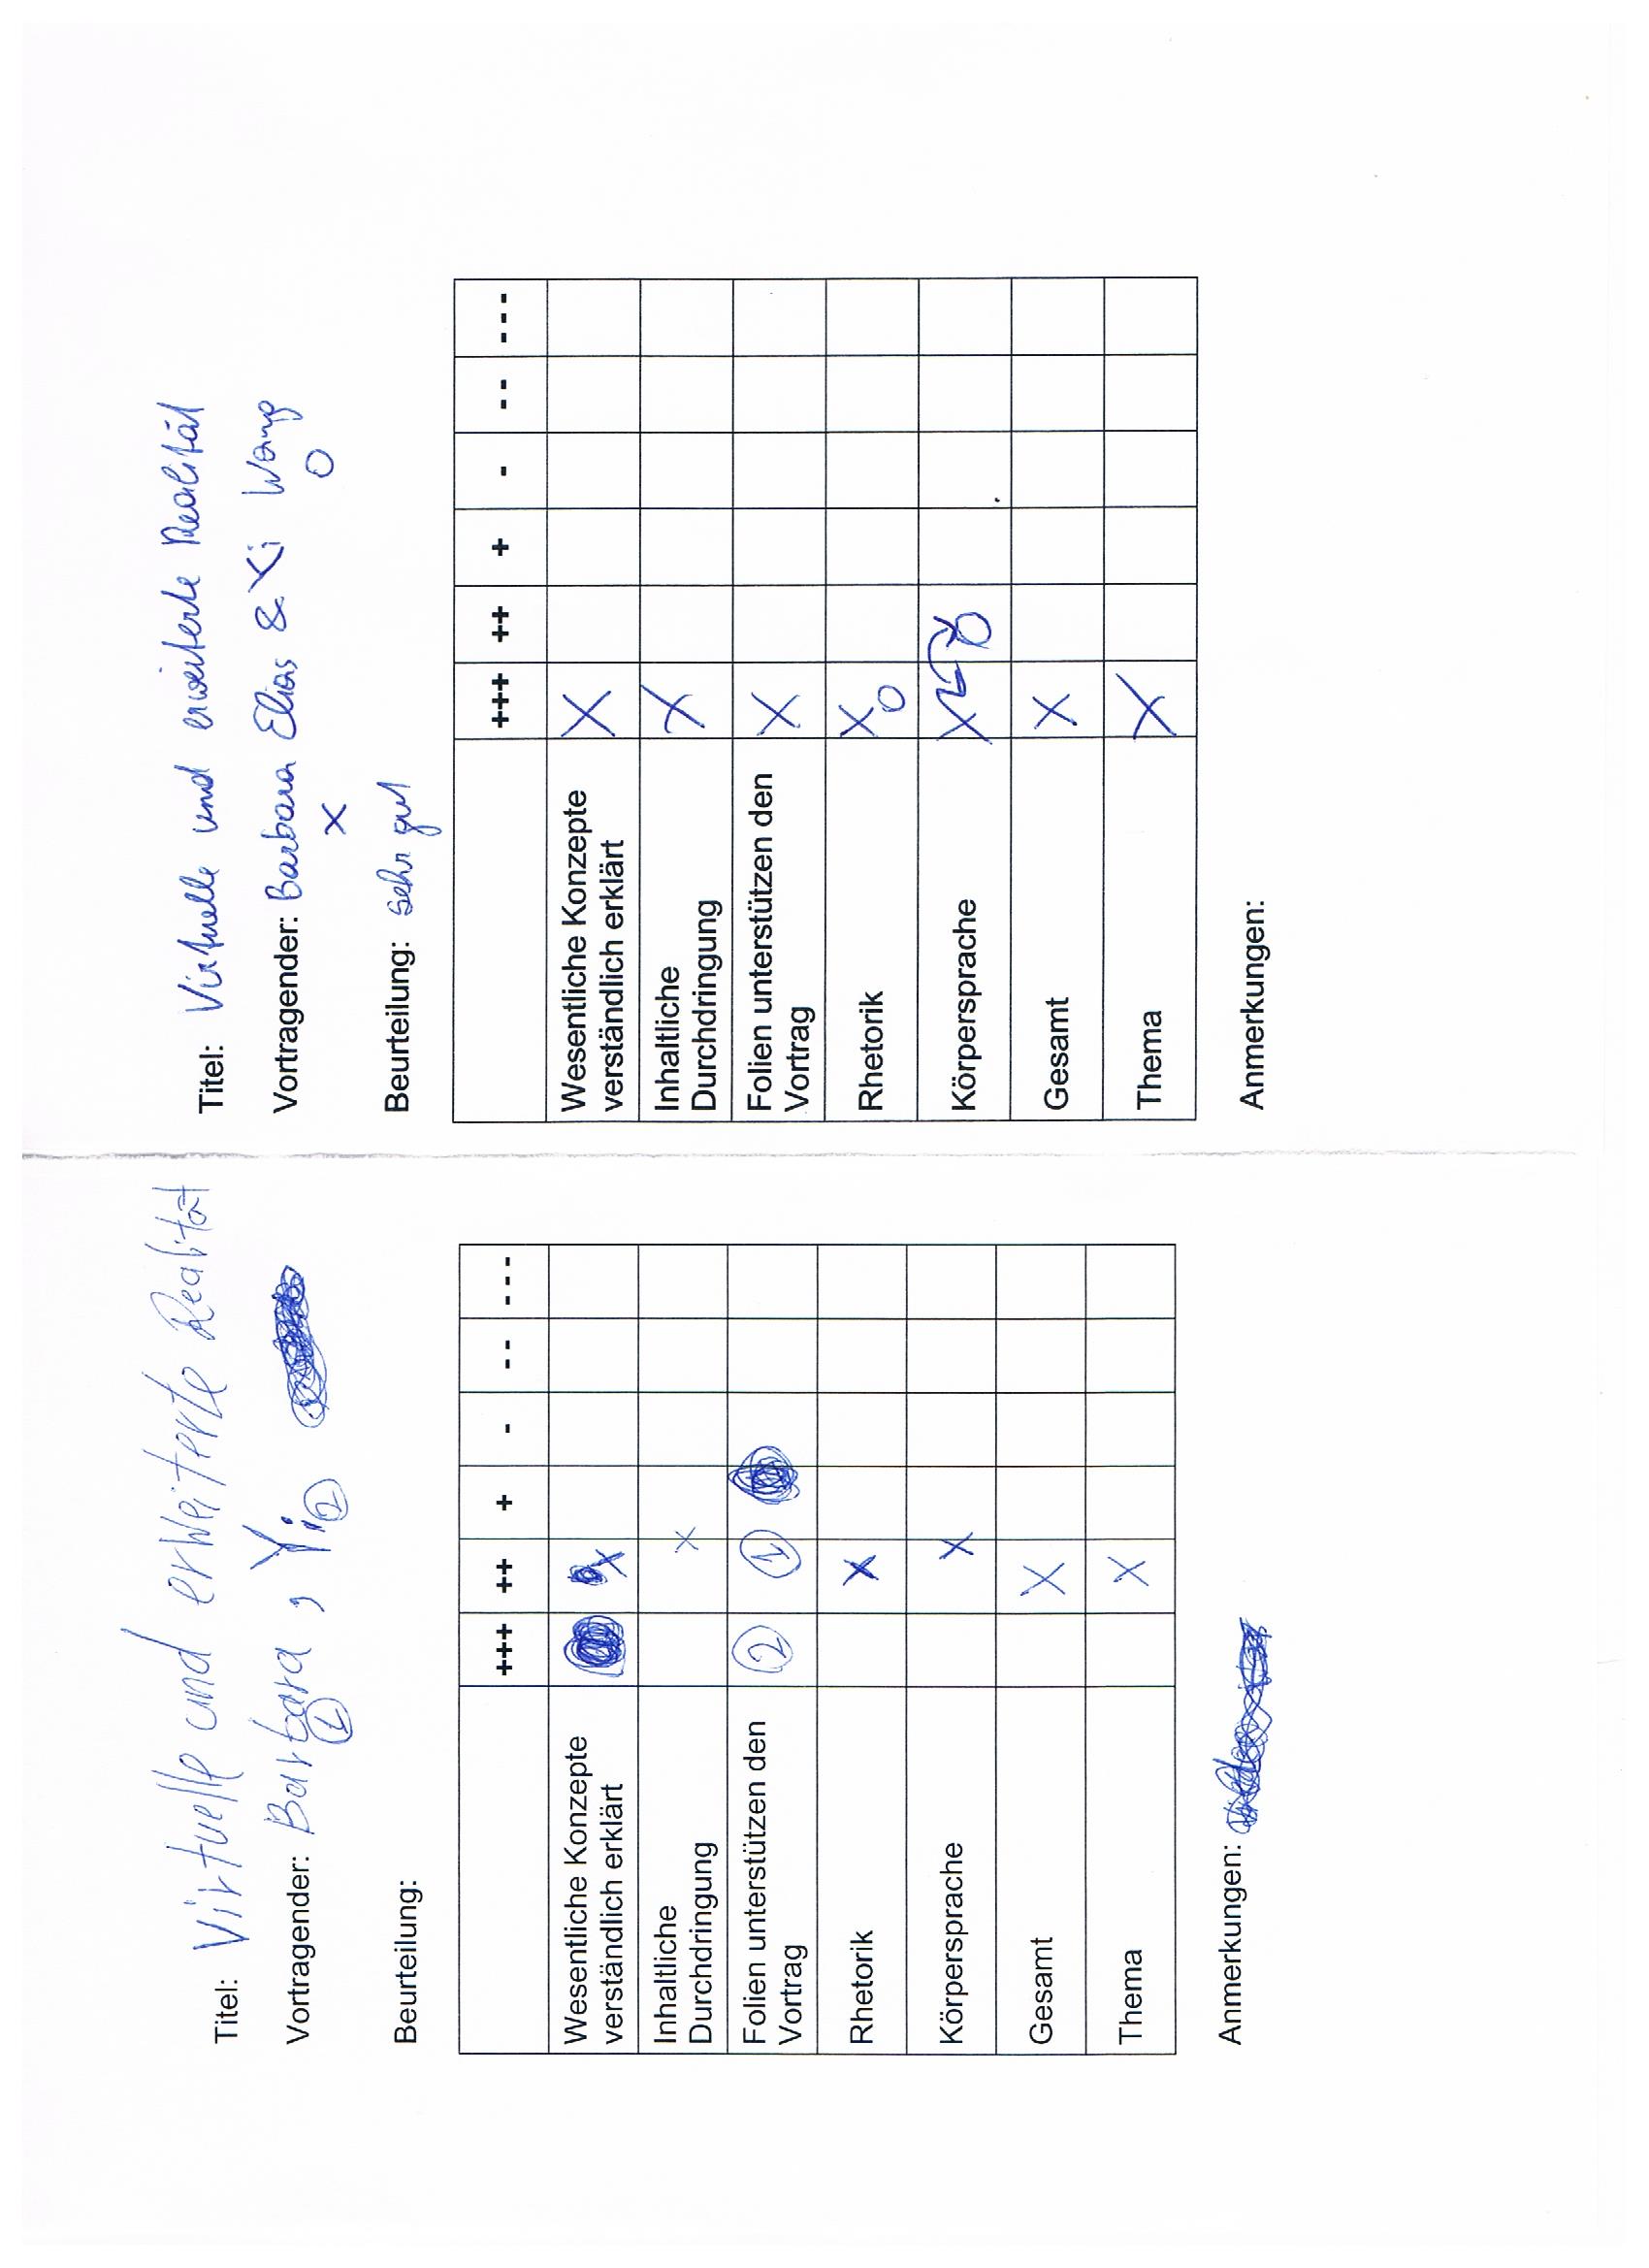 Titel: Virtuelle und erweiterte Realität
Vortragender: Barbara, Yi
1 2
Beurteilung:
+++ ++ + - -- ---
Wesentliche Konzepte
verständlich erklärt X
Inhaltliche
Durchdringung X
Folien unterstützen den
Vortrag 2 1
Rhetorik X
Körpersprache X
Gesamt X
Thema X
Anmerkungen:
Titel: Virtuelle und erweiterte Realität
Vortragender: Barbara Elias & Yi Wang
X O
Beurteilung: sehr gut
+++ ++ + - -- ---
Wesentliche Konzepte
verständlich erklärt X
Inhaltliche
Durchdringung X
Folien unterstützen den
Vortrag X
Rhetorik X O
Körpersprache X O
Gesamt X
Thema X
Anmerkungen: